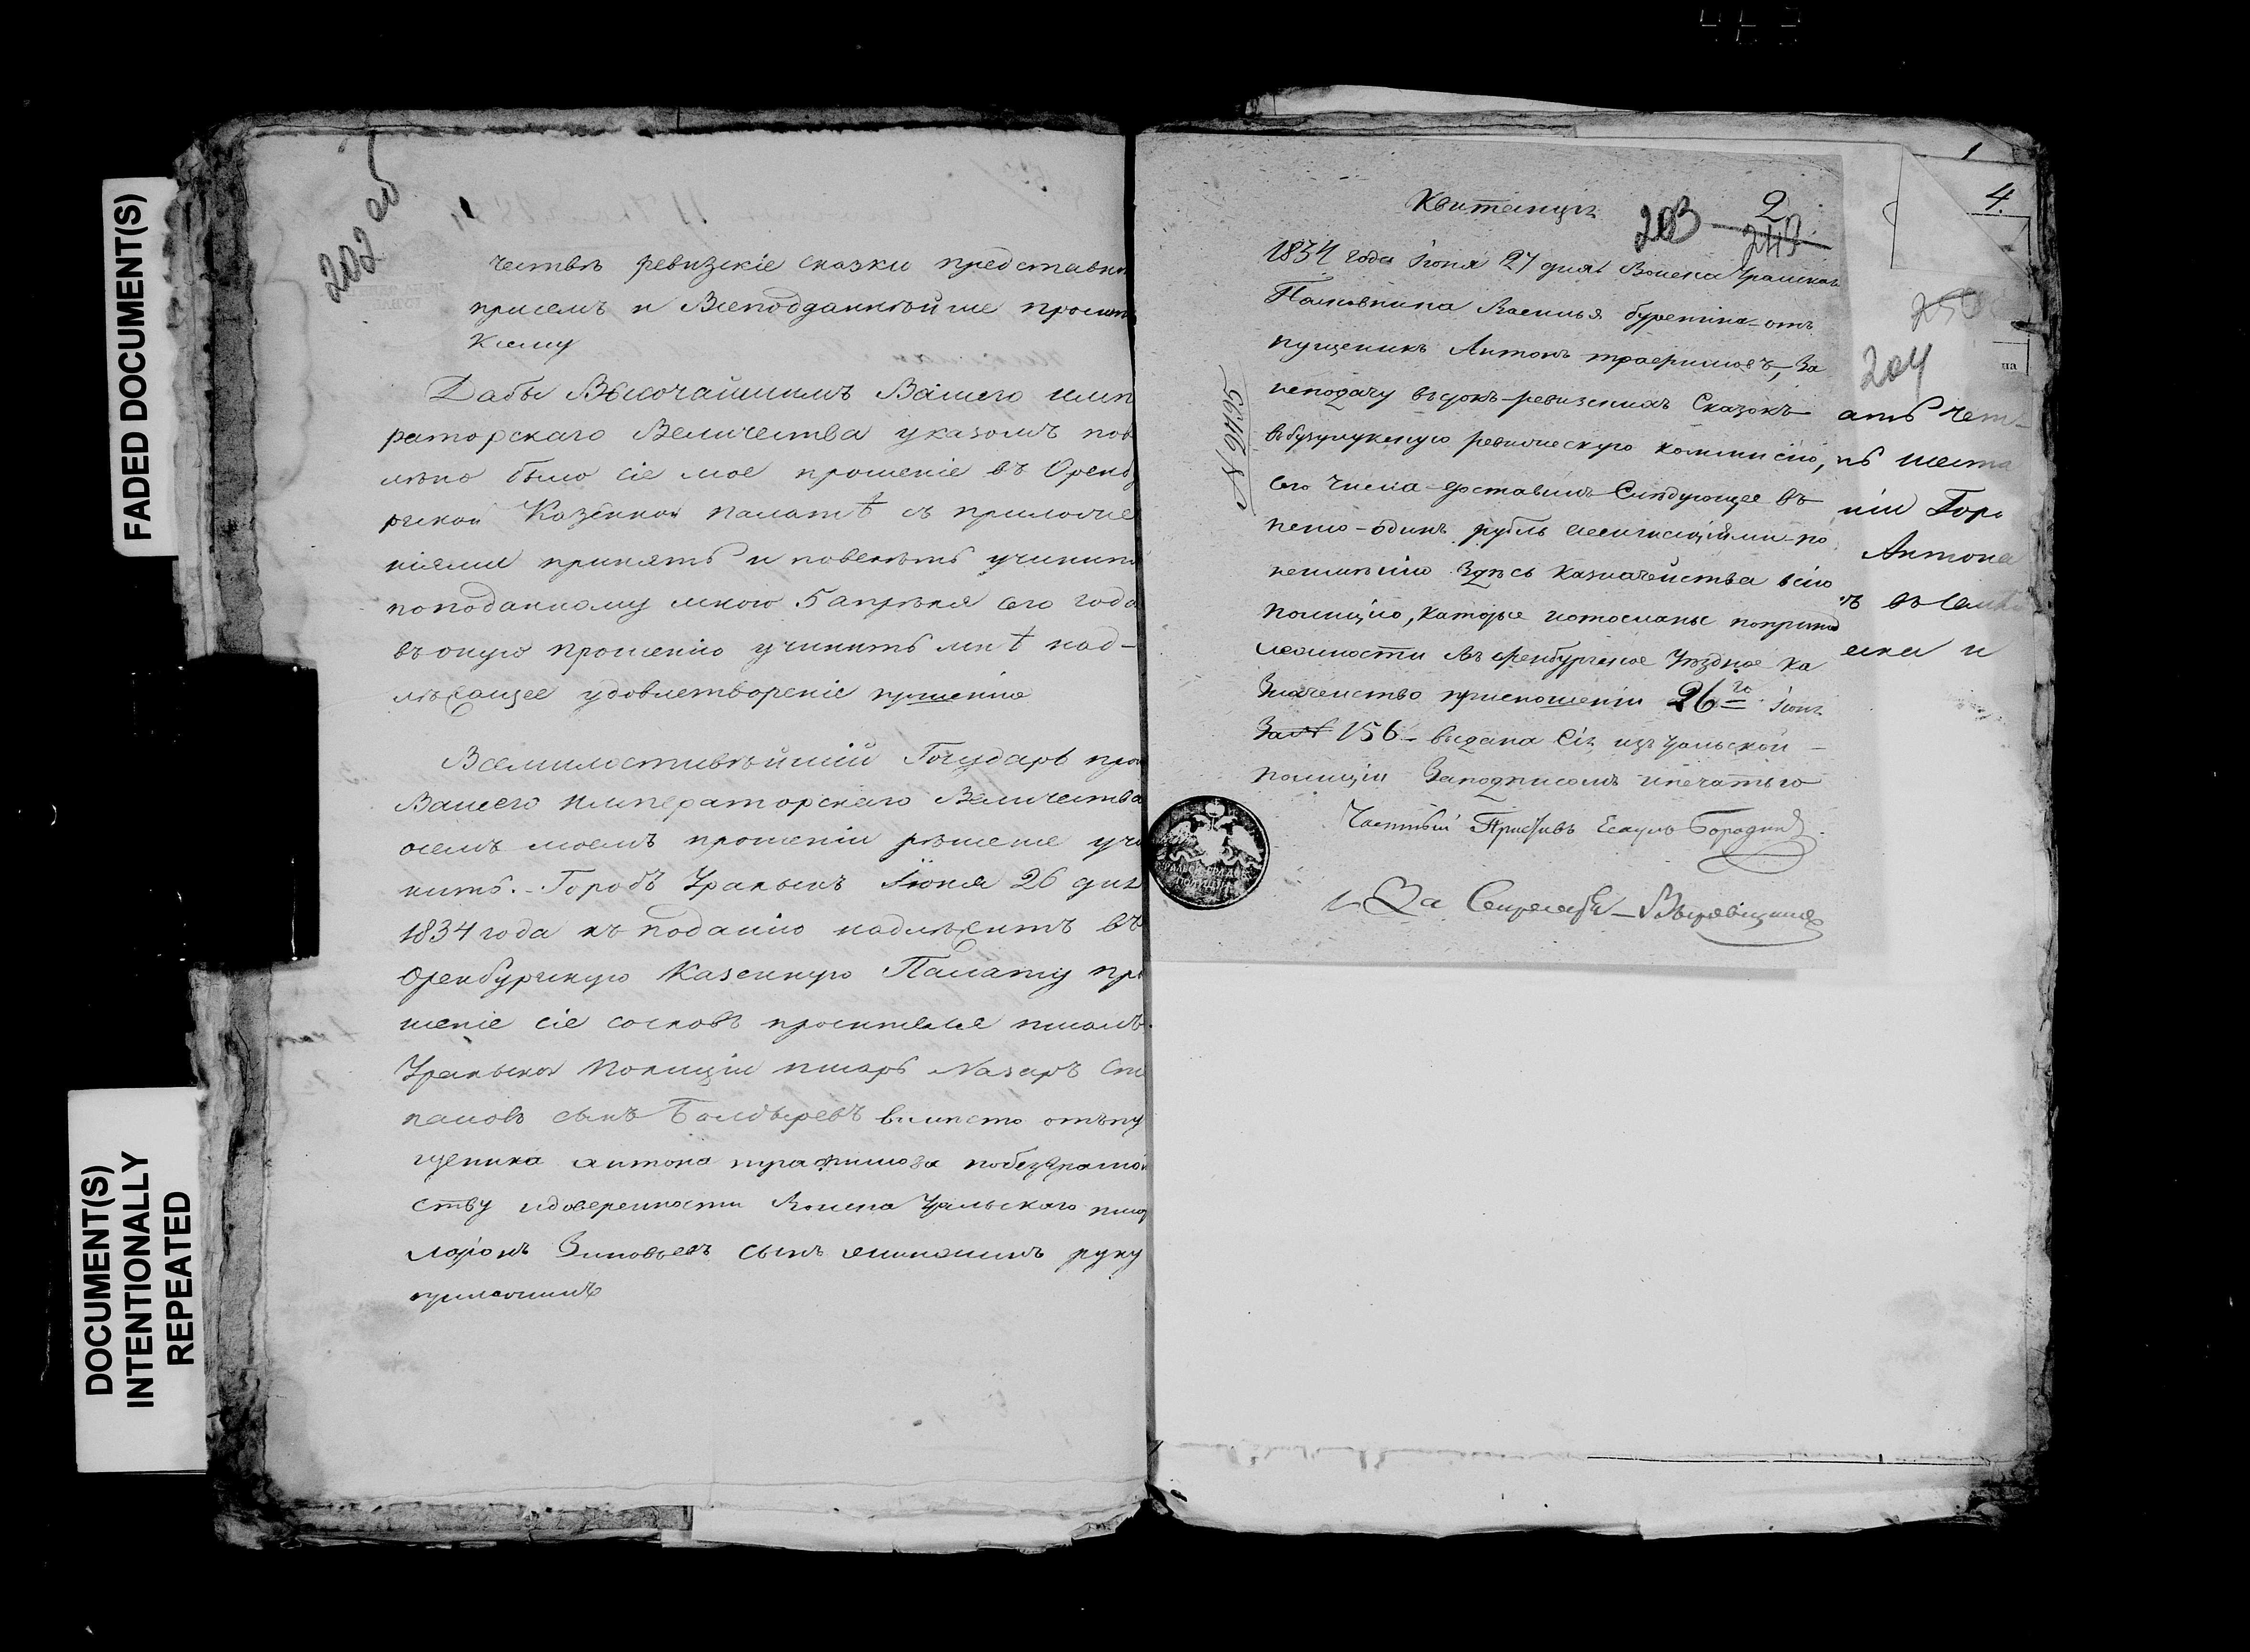 FADED DOCUMENT(S)
DOCUMENT(S)
INTENTIONALLY
REPEATED
202 об
чествѣ ревизскіе сказки представи
присемъ и Всеподданнѣйше просит
Ксему
Дабы Высочайшимъ Вашего имп
раторскаго Величества указомъ пов
лѣно было сіе мое прошеніе въ Оренб
ргской Казенной палатѣ съ приложе
ніями принять и повелѣть учинить
поподанному мною 5 апрѣля сего года
въ оную прошенію учинить мнѣ над-
лѣжащее удовлетвореніе прошенію
Всемилостивѣйшій Государь про
Вашего Императорскаго Величества
осемъ моемъ прошеніи рѣшеніе учи
нить. - Городъ Уральскъ Іюня 26 дня
1834 года къ поданію надлѣжитъ въ
Оренбургскую Казенную Палату пр
шеніе сіе сословъ просителя писалъ
Уральской Полиціи писарь Назаръ Сте
пановъ сынъ Болдыревъ вместо отъпу
щеника антона трафимова побезграмот
ству идоверенности Воиска Уральскаго писар
Зиновьевъ сынъ руку
приложилъ
Квитанція
203
2
243
1834 года Іюня 27 дня Воиска Уральскаго
Полковника Василья буренина от
пущеникъ Антонъ трафимовъ, За
неподачу въсрокъ ревизскихъ Сказокъ
въбузулукскую ревизскую коммисію,
сего Числа доставилъ Слѣдующее въ
пеню - одинъ рубль ассигнаціями по
неимѣнію Здѣсь Казначейства всію
Полицію, каторые иотосланы попринад
лежности Въ Оренбургское Уѣздное Ка
Значейство приотношеніи 26го Іюня
За № 156 - выдана Сія изъ Уральской -
полиціи Заподписомъ ипечатью
Частный Приставъ Есаулъ Бородинъ
За Секретаря
N 2495
1
4.
250
204
на
ать чет-
въ шеста
ніи Горо
Антона
въ семъ
ска и